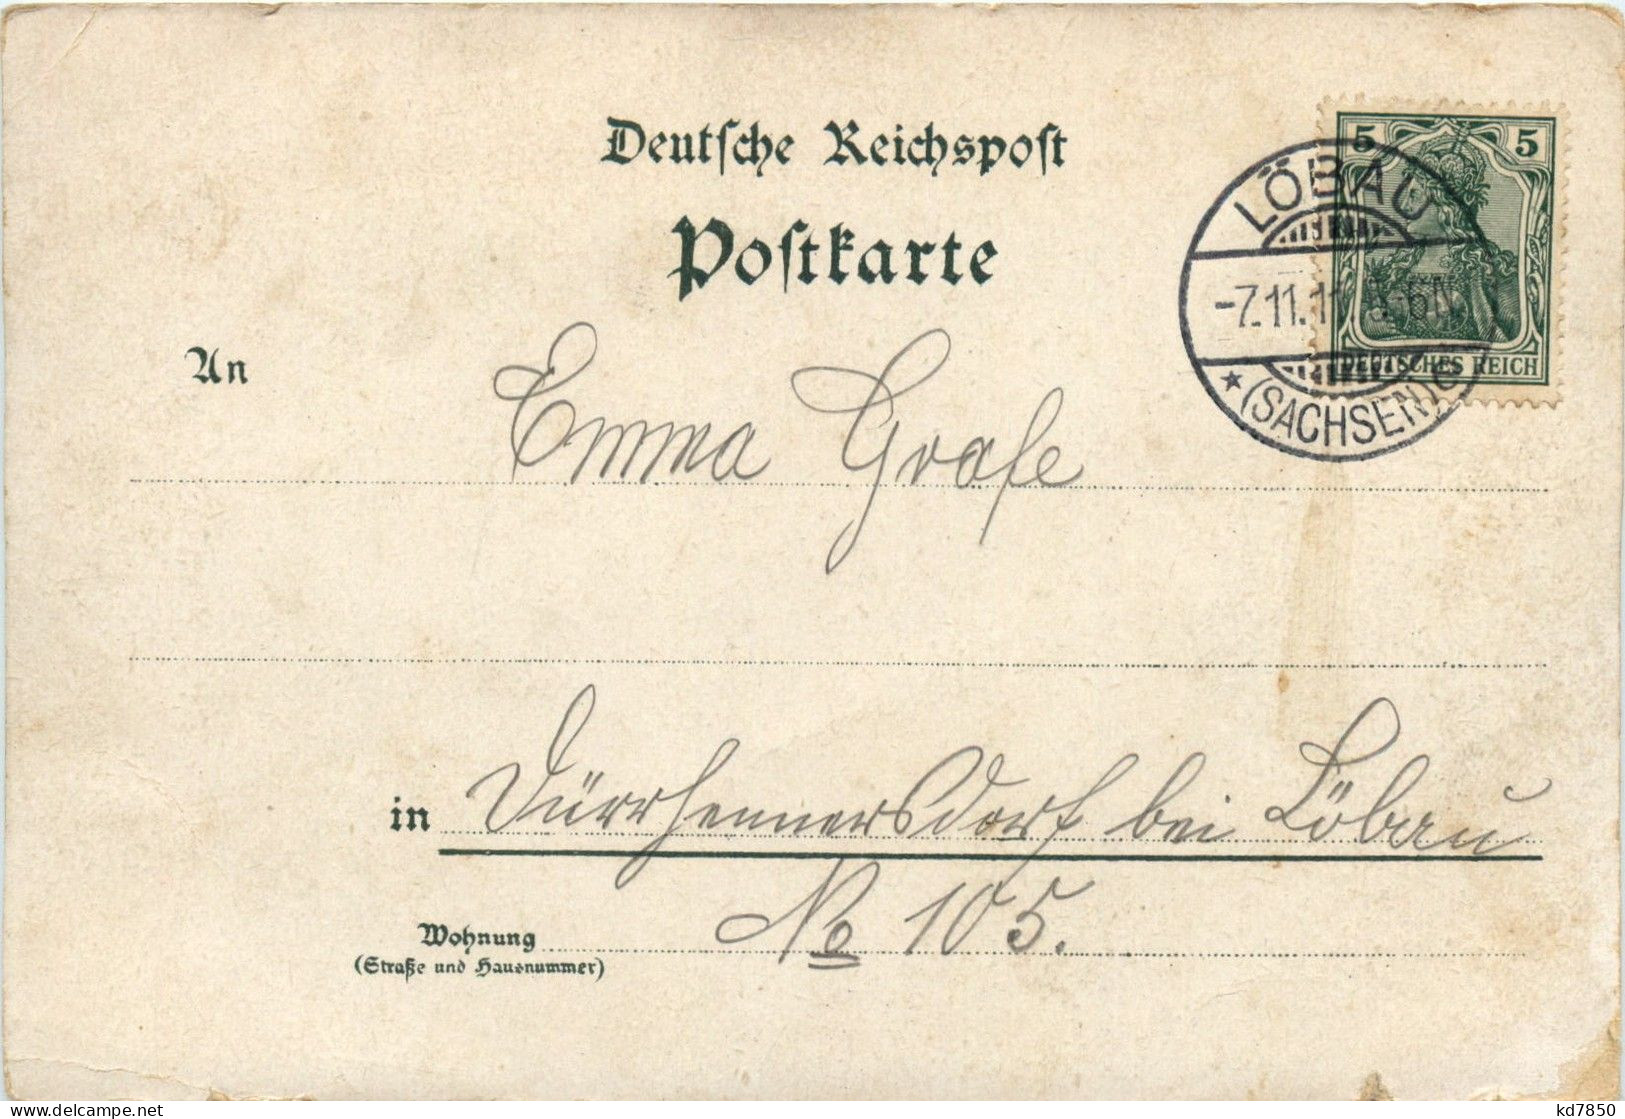 Deutsche Reichspost
Postkarte
5 5
DEUTSCHES REICH
LÖBAU
-7.11.11 5-6N.
* (SACHSEN) c
An Emma Grafe
in Dürrhennersdorf bei Löbau
Wohnung No 105.
(Straße und Hausnummer)
www.delcampe.net
kd7850